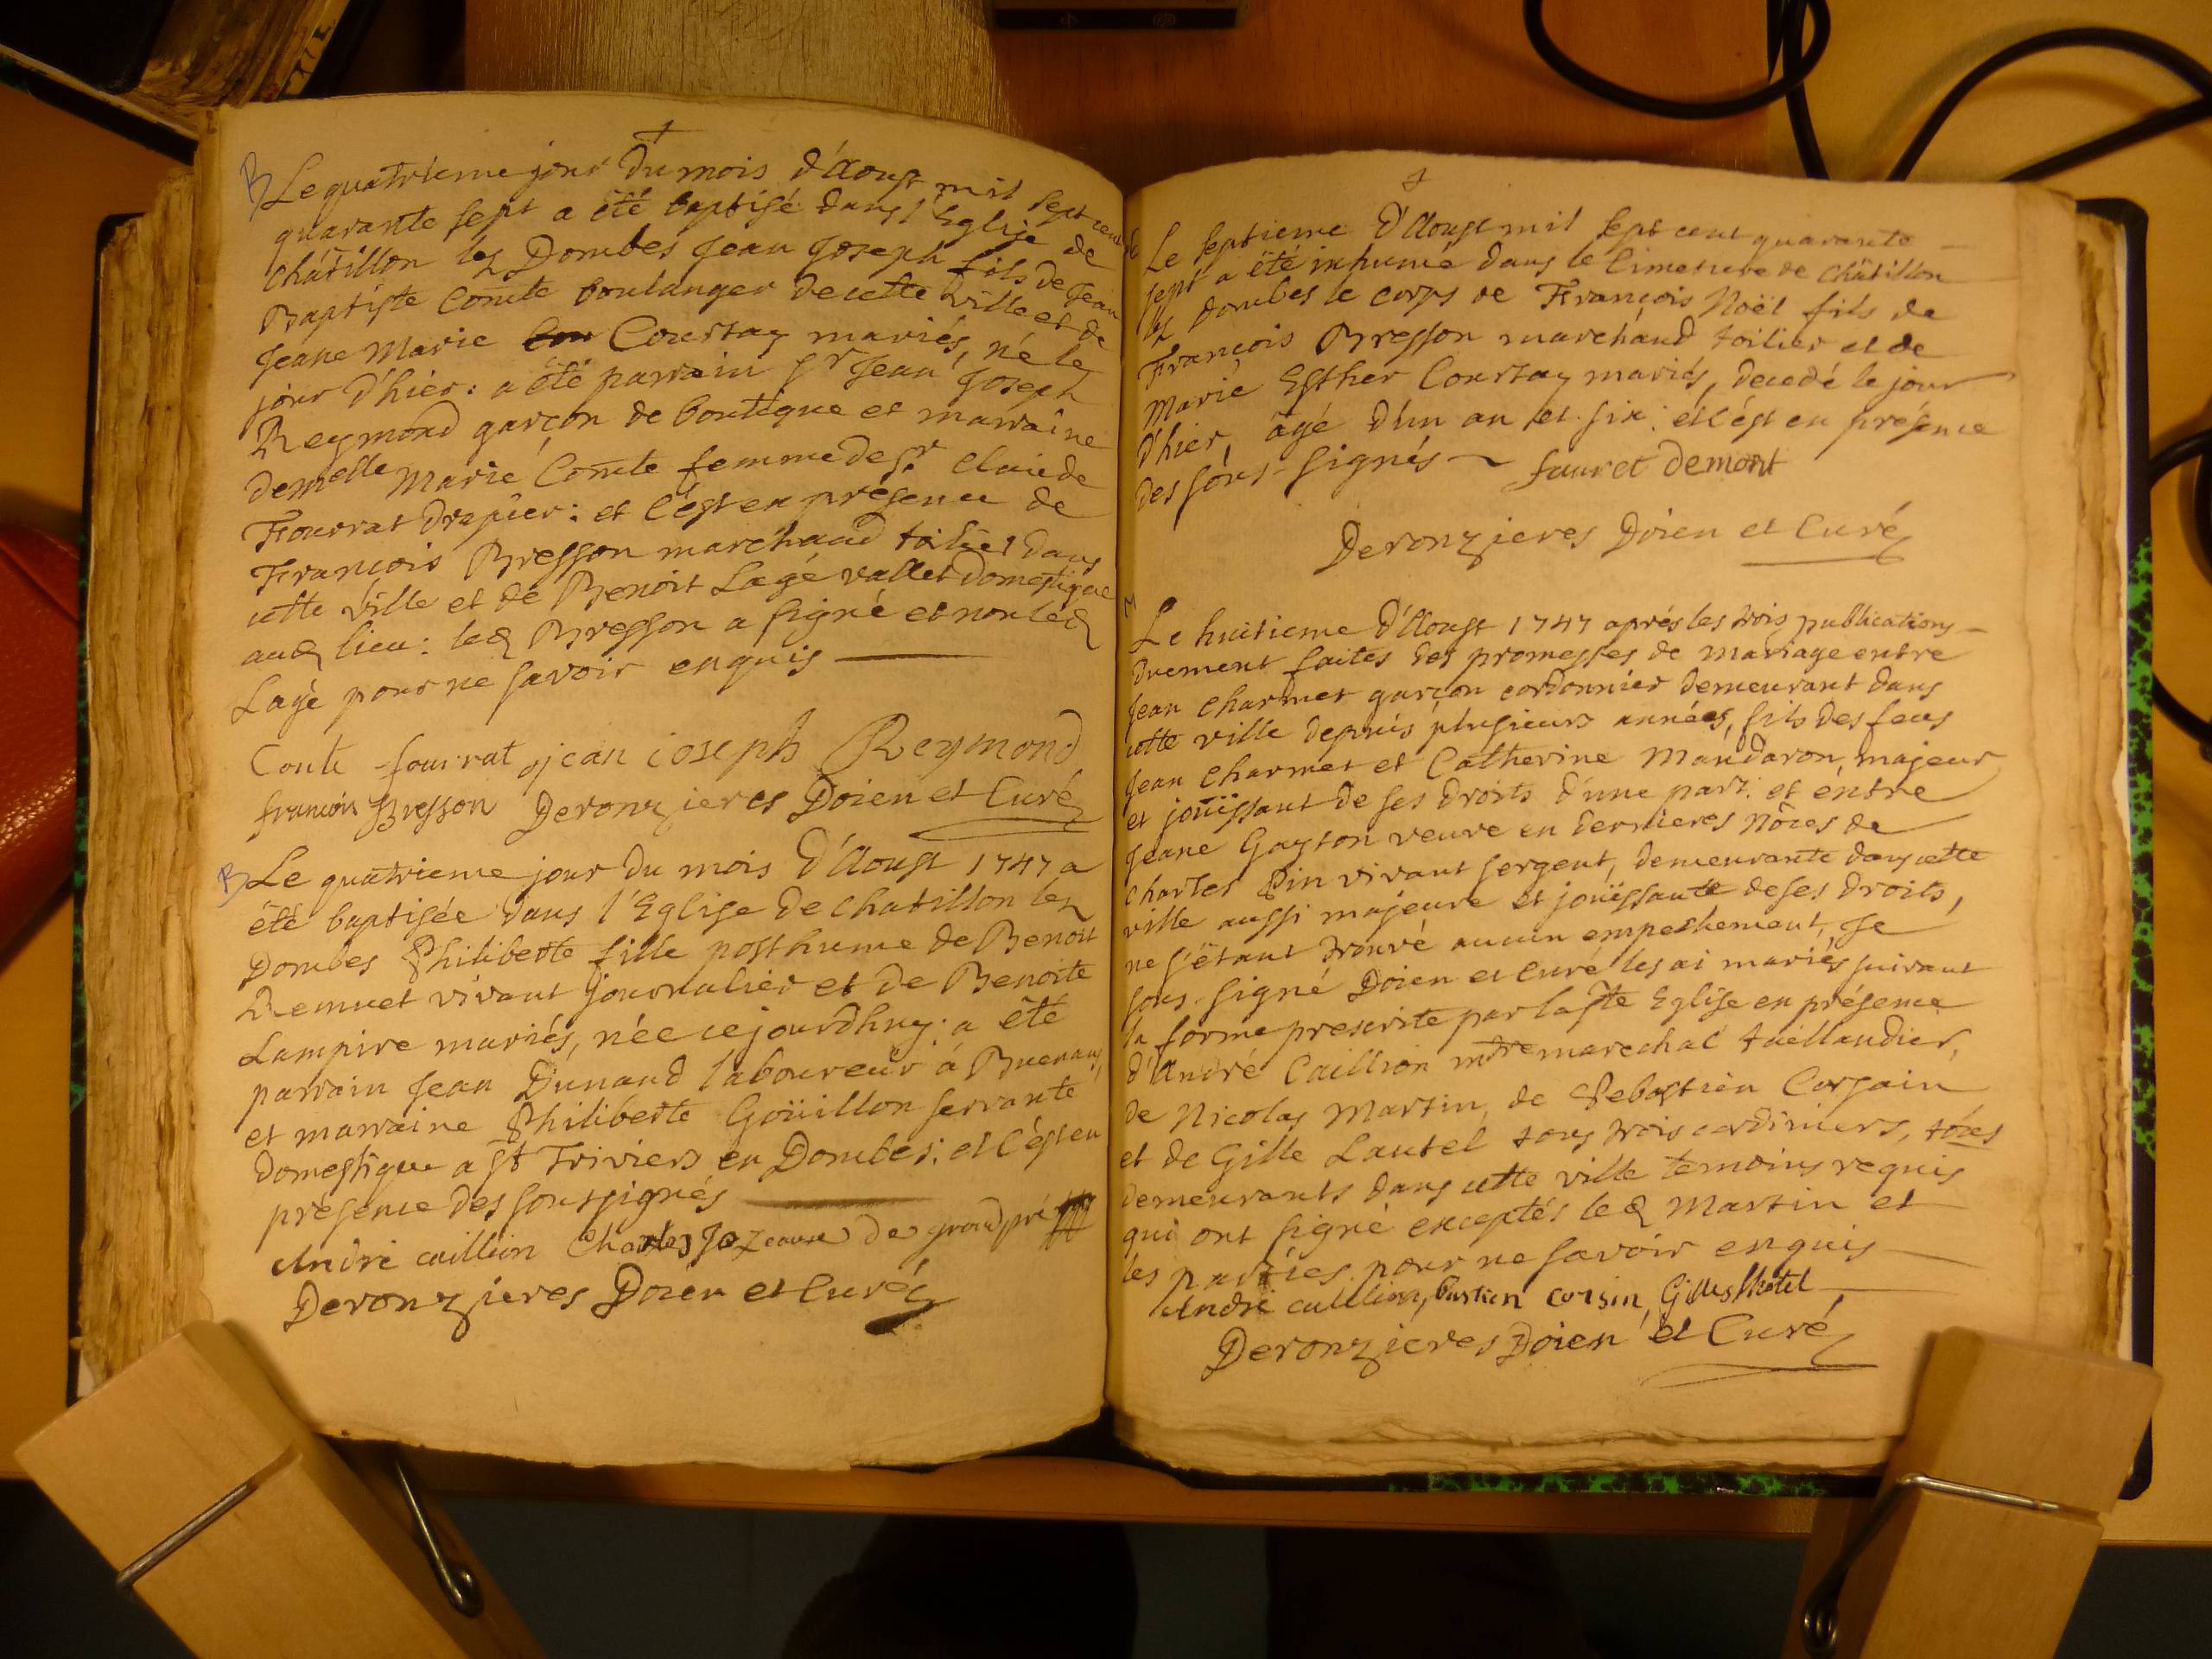 B Le quatrieme jour du mois d'Aoust mil sept cent
quarante sept a été baptisé dans l'Eglise de
châtillon les Dombes Jean Joseph fils de Jean
Baptiste Comte boulanger de cette ville et de
Jeane Marie Courtay mariés, né le
jour d'hier: a été parrain Sr Jean Joseph
Reymond garçon de boutique et marraîne
demelle Marie Comte femme de Sr Claude
Fourrat drapier: et c'est en présence de
François Bresson marchand toilier dans
cette ville et de Benoit Lagé vallet domestique
aud lieu: led Bresson a signé et non led
Lagé pour ne savoir enquis
Conte fourrat jean ioseph Reymond
francois Bresson Deronzieres Doien et Curé
B Le quatrieme jour du mois d'Aoust 1747 a
été baptisée dans l'Eglise de chatillon les
Dombes Philiberte fille posthume de Benoit
Remuet vivant journalier et de Benoite
Lampire mariés, née ce jourdhuy: a été
parrain Jean Dunand laboureur à Buenans
et marraine Philiberte Goüillon servante
domestique a St Triviers en Dombes: et c'est en
présence des soussignés
André caillion Charles de grandpré
Deronzieres Doien et Curé
Le septieme D'Aoust mil sept cent quarante
sept a été inhumé dans le Cimetiere de Châtillon
les Dombes le corps de François Noël fils de
François Bresson marchand toilier et de
Marie Esther Courtay mariés, decedé le jour
d'hier, âgé d'un an et six: et c'est en présence
des sous-signés fauret demont
Deronzieres Doien et Curé
M
Le huitieme D'Aoust 1747 aprés les trois publications
duement faites des promesses de mariage entre
Jean Charmet garçon cordonnier demeurant dans
cette ville depuis plusieurs années, fils des feus
Jean Charmet et Catherine Mandaron, majeur
et joüissant de ses droits d'une part: et entre
Jeane Gayton veuve en dernieres nôces de
Charles Pin vivant sergent, demeurante dans cette
ville aussi majeure et joüissante de ses droits,
ne s'étant trouvé aucun empeshement, Je
sous-signé Doien et Curé les ai mariés suivant
la forme prescrite par la Ste Eglise en présence
d'André Caillion mtre marechal taillandier,
de Nicolas Martin, de Sebastien Corsain
et de Gille Lautel tous trois cordiniers, tous
demeurants dans cette ville temoins requis
qui ont signé exceptés led Martin et
les parties pour ne savoir enquis
André caillion, bastien corsin, Gilles
Deronzieres Doien et Curé